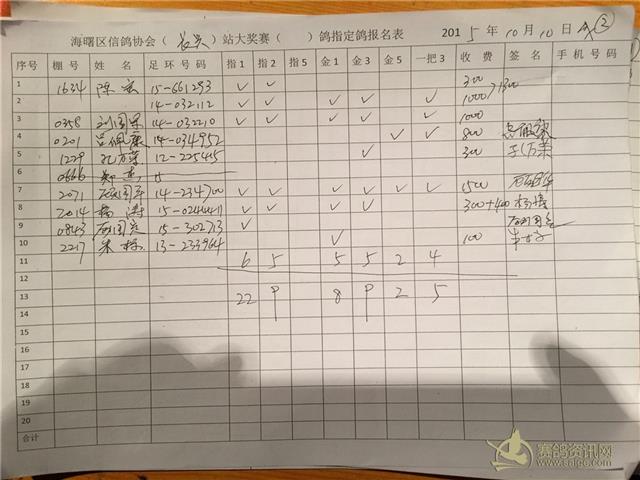 海曙区信鸽协会（长兴）站大奖赛（ ）鸽指定鸽报名表 2015年10月10日 ②
序号 棚号 姓名 足环号码 指1 指2 指5 金1 金3 金5 一把3 收费 签名 手机号码
1 1634 陈 15-661293 ✓ ✓ 300
2 14-032112 ✓ ✓ ✓ ✓ ✓ 1000 >1300
3 0358 刘国 14-032210 ✓ ✓ ✓ ✓ ✓ 1000
4 0201 吕佩康 14-034952 ✓ ✓ 800 吕佩康
5 1229 孔万荣 12-225445 ✓ 300 孔万荣
6 0666 15
7 2071 14-234700 ✓ ✓ ✓ ✓ ✓ ✓ 1500
8 2014 杨涛 15-0244411 ✓ ✓ ✓ ✓ 300+400 杨涛
9 0843 15-302713 ✓
10 2217 朱 13-233964 ✓ 100
11 6 5 5 5 2 4
12
13 22 9 8 9 2 5
14
15
16
17
18
19
20
合计
赛鸽资讯网
www.saige.com